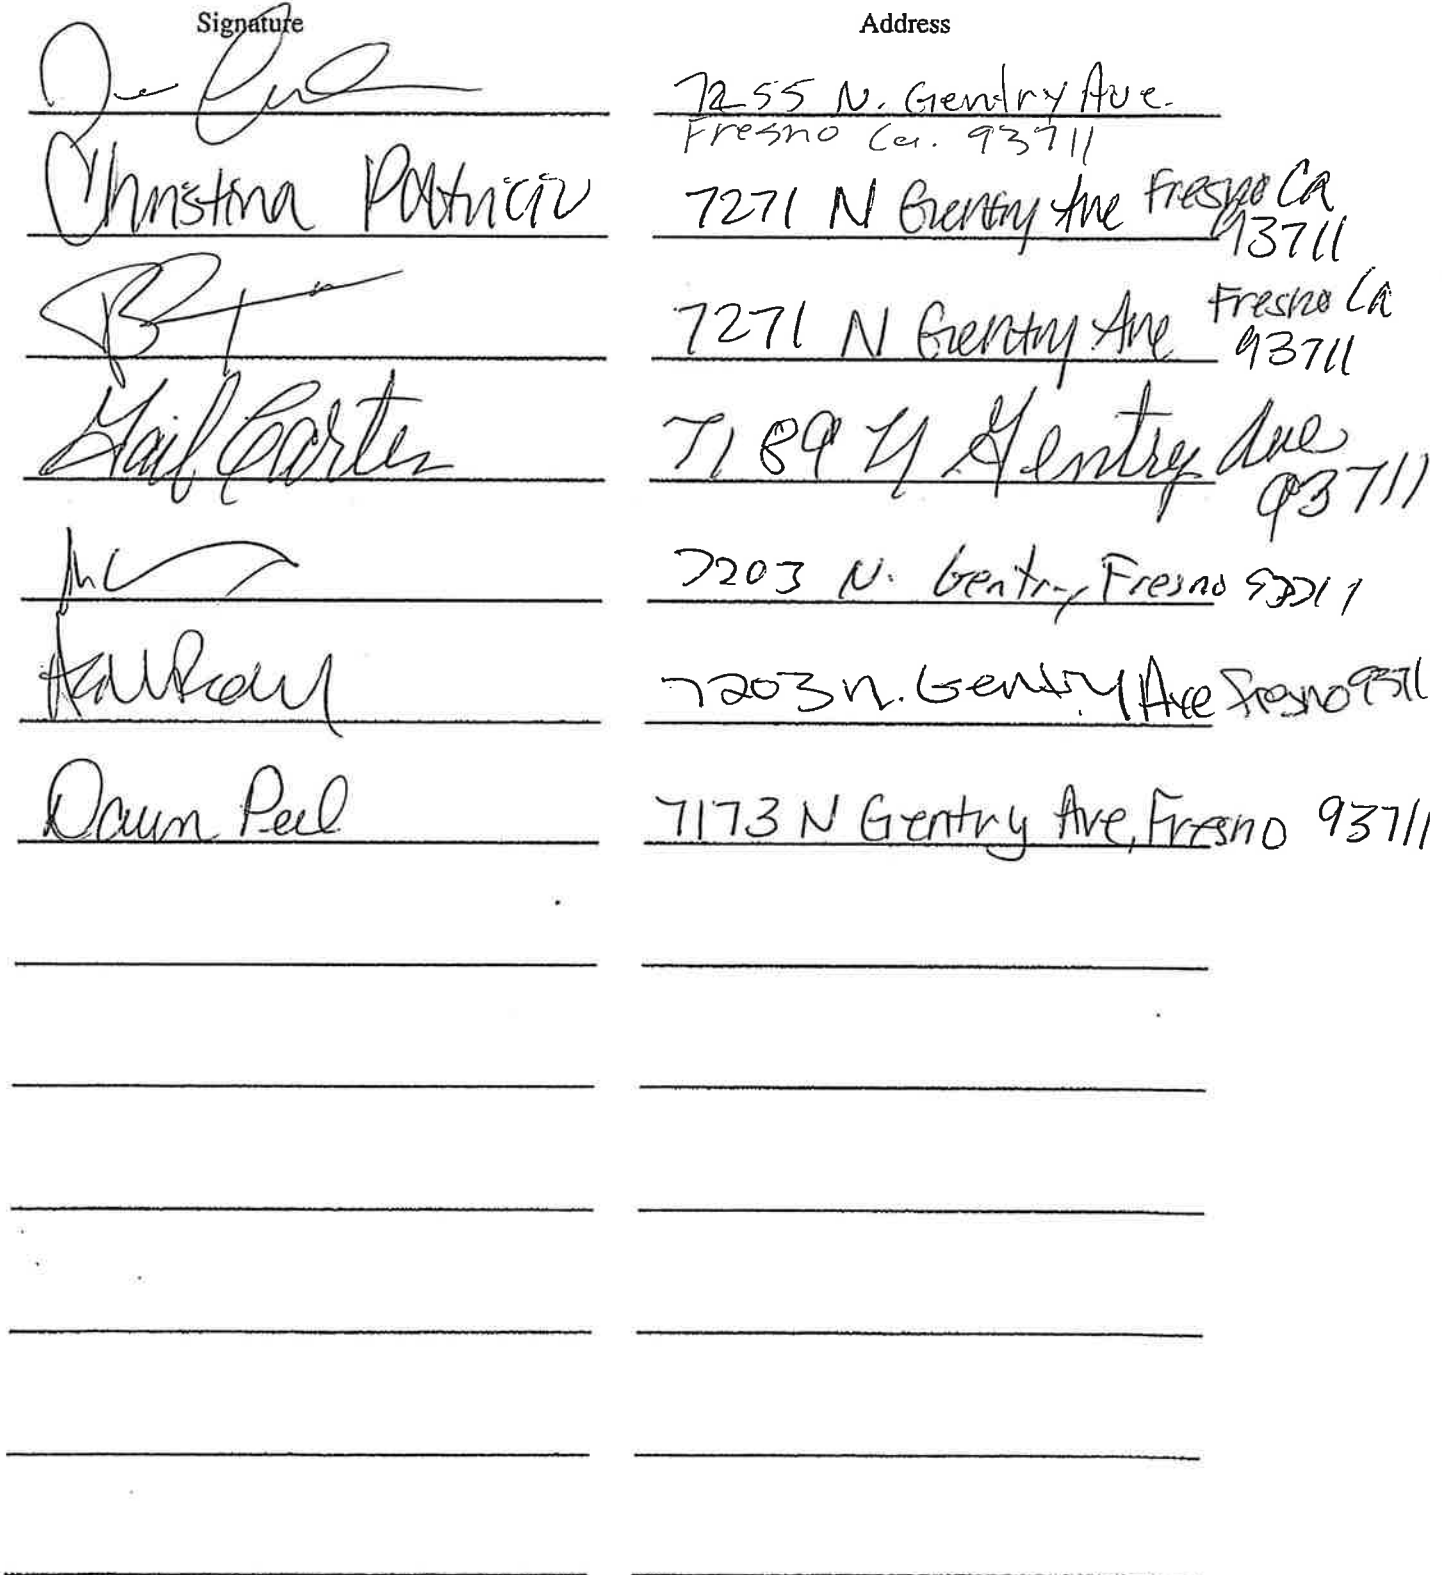 Signature Address
7255 N. Gentry Ave.
Fresno Ca. 93711
Christina Patricio 7271 N Gentry Ave Fresno Ca
93711
7271 N Gentry Ave Fresno Ca
93711
Gail Carter 7189 N Gentry Ave
93711
7203 N. Gentry Fresno 93711
7203 n. Gentry Ave Fresno 93711
Dawn Peel 7173 N Gentry Ave, Fresno 93711